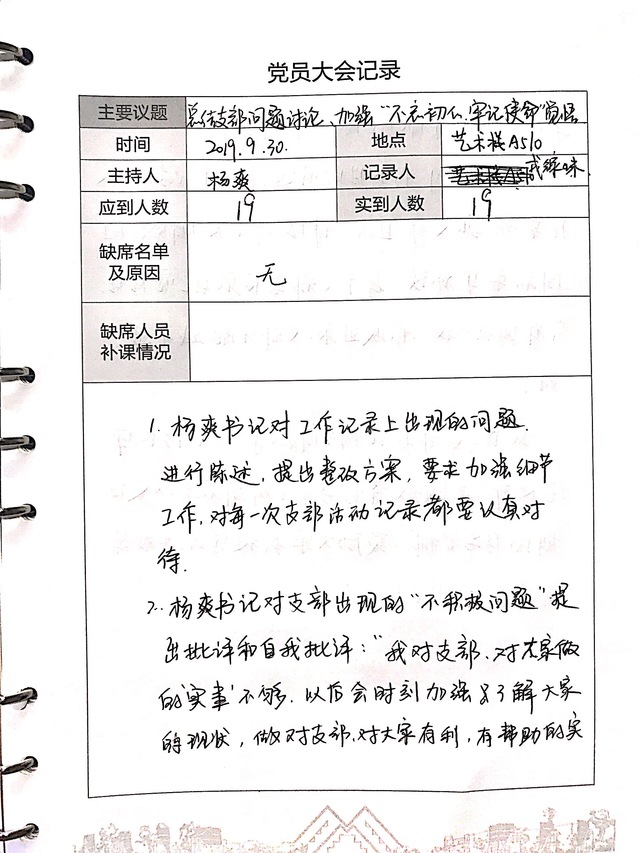 党员大会记录
主要议题 总结支部问题讨论、加强"不忘初心、牢记使命"觉悟
时间 2019.9.30. 地点 艺术楼A510
主持人 杨爽 记录人
应到人数 19 实到人数 19
缺席名单
及原因 无
缺席人员
补课情况
1. 杨爽书记对工作记录上出现的问题.
进行陈述,提出整改方案,要求加强细节
工作,对每一次支部活动记录都要认真对
待.
2. 杨爽书记对支部出现的"不积极问题"提
出批评和自我批评:"我对支部、对大家做
的'实事'不够.以后会时刻加强了解大家
的现状,做对支部、对大家有利,有帮助的实